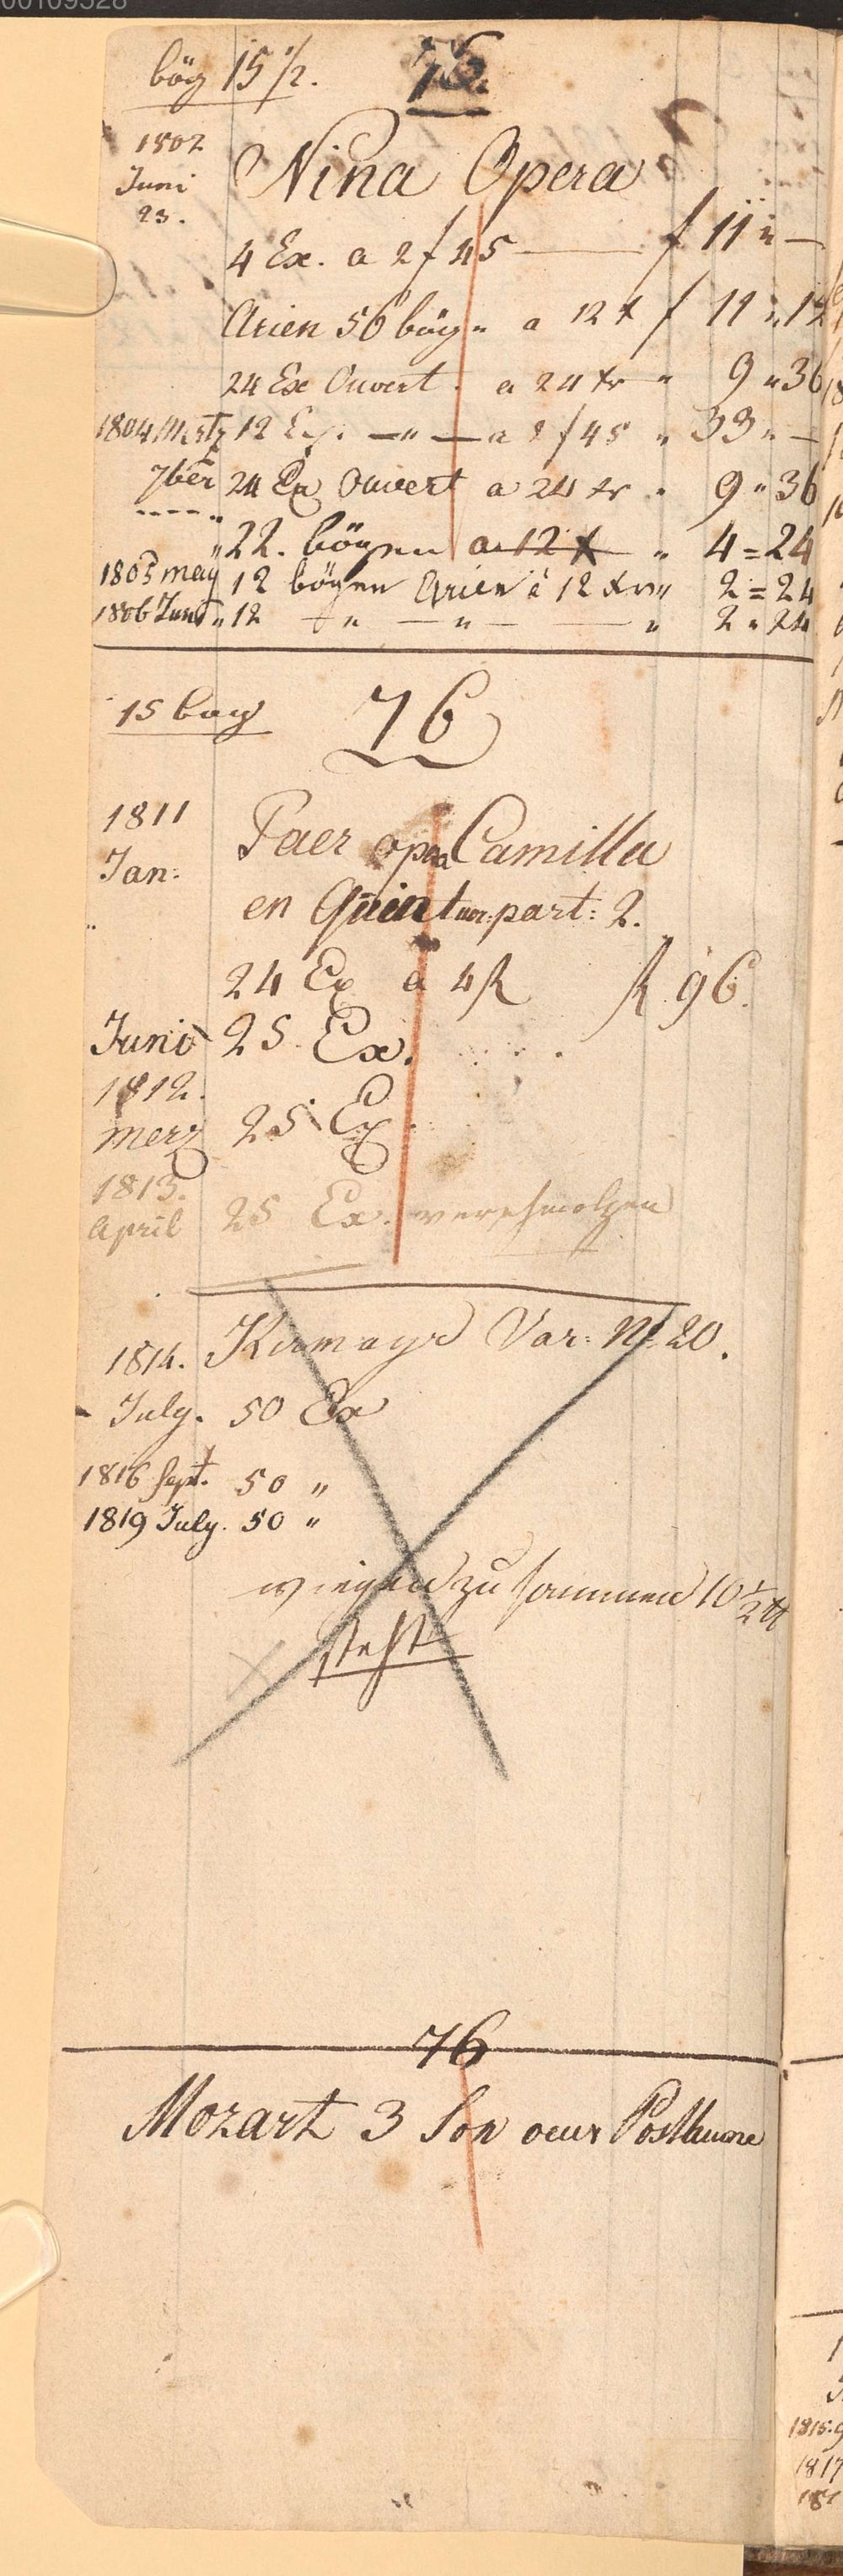 00109528
bög 15 1/2. 76.
1802 Nina Opera
Juni
23.
4 Ex. a 2 f 45 — f 11 " —
Arien 56 bög " a 12 x f 11 " 12
24 Ex Ouvert. a 24 xr " 9 " 36
1804 Mertz 12 Ex. — " — a 2 f 45 " 33 " —
7ber 24 Ex Ouvert a 24 xr " 9 " 36
" 22. bögen a 12 x " 4 = 24
1805 may 12 bögen Arien à 12 xr " 2 = 24
1806 Juni " 12 — " — " — " 2 " 24
15 bog 76
1811 Paer opera Camilla
Jan:
en Quintuor: part: 2.
24 Ex a 4 R R 96.
Juni 25. Ex.
1812.
Merz 25 Ex.
1813.
April 25 Ex. verschmolzen
1814. Kirmayr Var: No 20.
July. 50 Ex
1816 Sept. 50 "
1819 July. 50 "
wiegen zusammen 10 1/2 ℔
steht
76
Mozart 3 Son oeuv Posthume
1815. 9
1817
181